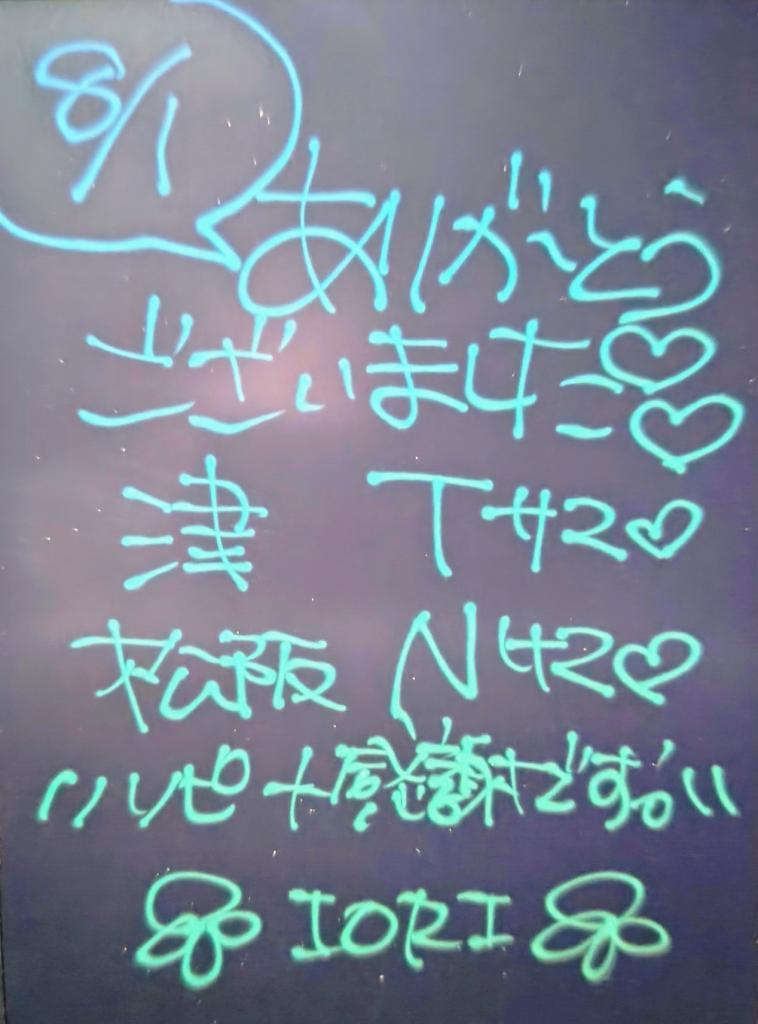 8/1
ありがとう
ございました♡♡
津 Tサマ♡
松阪 Nサマ♡
リピ+感謝です
IORI